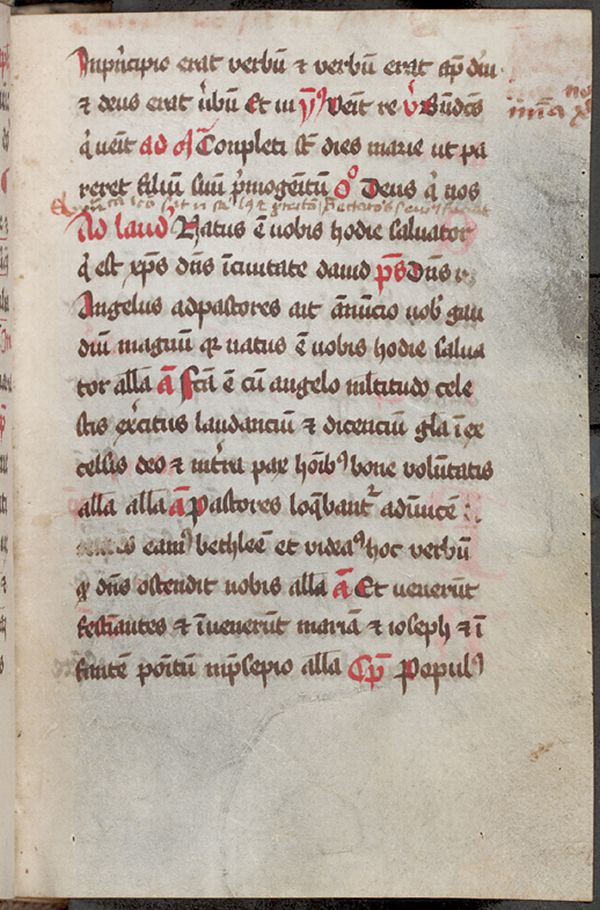 Inp͛ncipio erat verbū ⁊ verbū erat ap̄ dm̄
⁊ deus erat v͛bū Et in Veīt re
q̇ ueīt ad Conpleti st̄ dies marie ut pa
reret filiū suū p͛mogenitū Deus q̇ nos
Ad laud᷑ Natus ē uobis hodie saluator
q̇ est xp̄s dn̄s īciuitate dauid ps̄ Dn̄s
Angelus adpastores ait ānūcio uob᷒ gau
diū magnū qr natus ē uobis hodie salua
tor all̄a ā Fc̄a ē cū angelo ml̄titudo cele
stis ex͛citus laudanciū ⁊ dicenciū gl̄a ī ex
celsis deo ⁊ int͛ra pax hoīb᷒ bone volūtatis
all̄a all̄a ā Pastores loq̄bant᷑ adīuicē
eam᷒ bethleē et videa᷒ hoc verbū
qđ dn̄s ostendit uobis all̄a ā Et uenerūt
festīantes ⁊ īuenerūt mariā ⁊ ioseph ⁊ ī
fantē poītū inp͛sepio all̄a Cp̄ Popul᷒